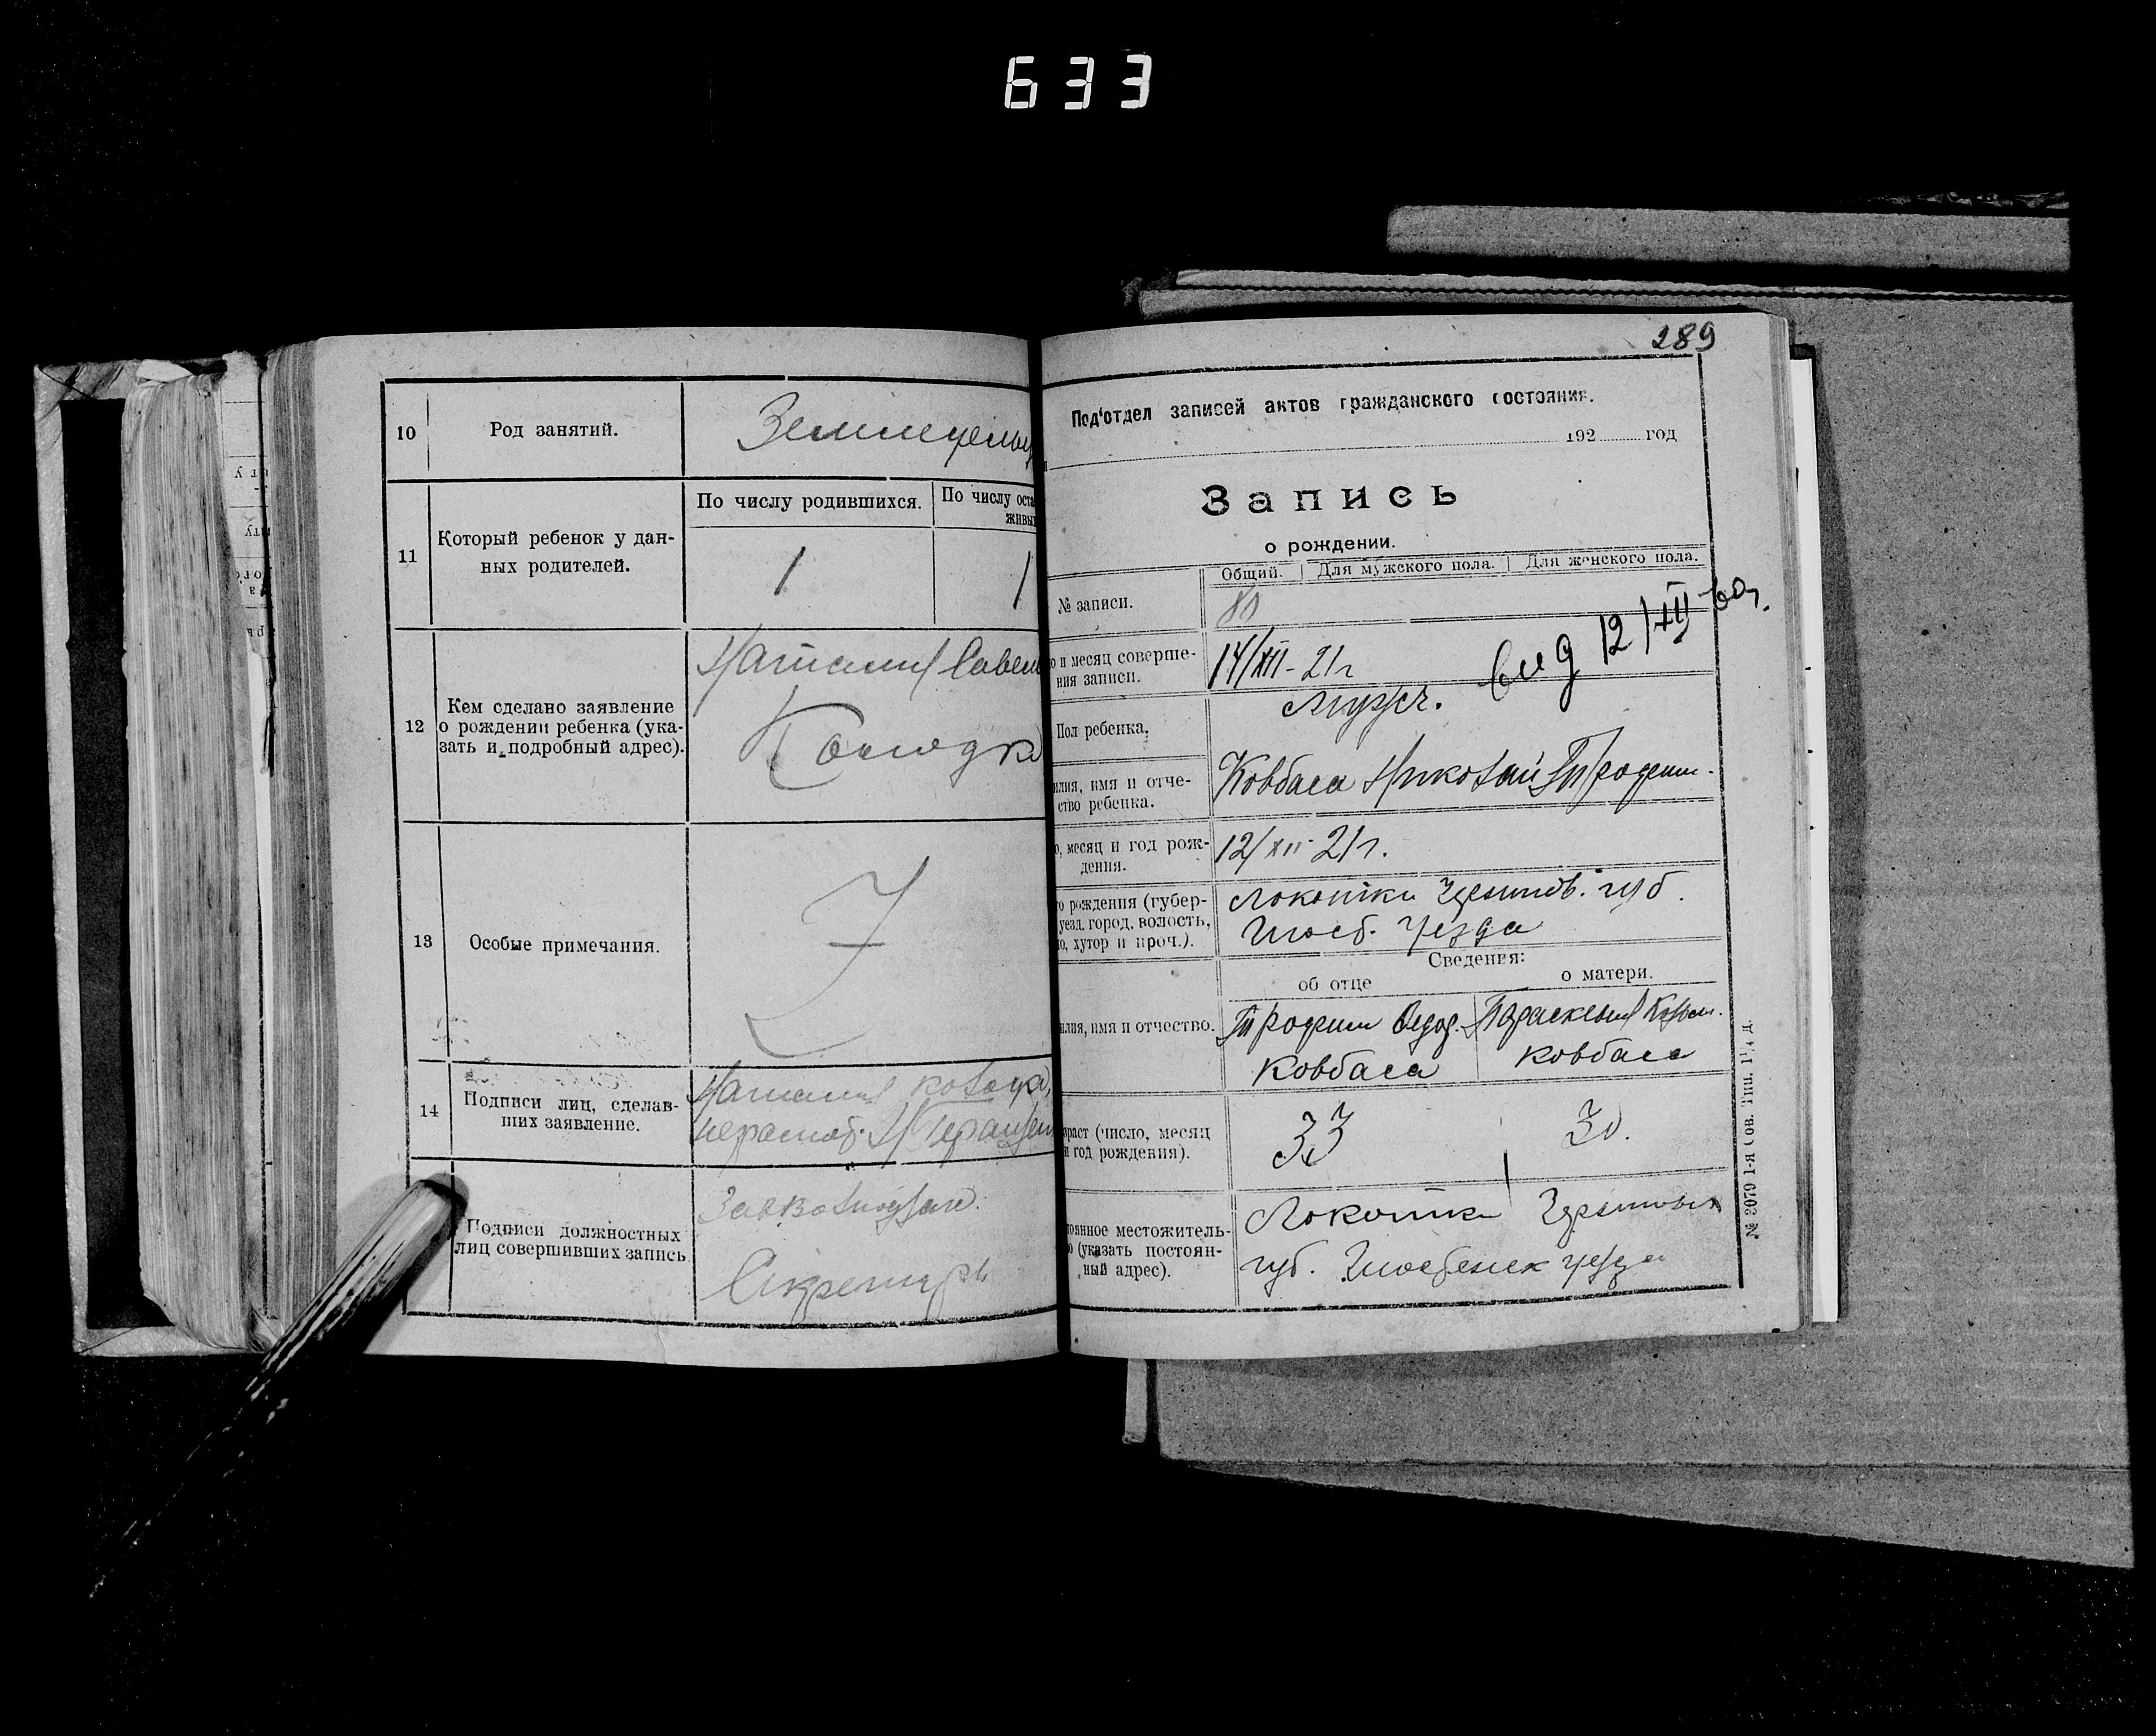 633
10
Род занятий.
11
Который ребенок у дан-
ных родителей.
По числу родившихся.
По числу оста
живы
1
1
12
Кем сделано заявление
о рождении ребенка (ука-
зать и подробный адрес).
Наталия Савел
13
Особые примечания.
14
Подписи лиц, сделав-
ших заявление.
Наталия
Подписи должностных
лиц совершивших запись
Секретарь
289
Под'отдел записей актов гражданского состояния.
192 год
Запись
о рождении.
Общий. Для мужского пола. Для женского пола.
№ записи.
80
о и месяц соверше-
ния записи.
14/XII - 21 г
вид 12/XII
Пол ребенка.
Мужс.
илия, имя и отче-
ство ребенка.
Ковбаса Николай Трофим.
о, месяц и год рож-
дения.
12/XII 21 г.
о рождения (губер-
уезд, город, волость,
о, хутор и проч.).
Локотки Чернигов. губ.
уезда
Сведения:
об отце
о матери.
илия, имя и отчество.
Трофим Федор.
Ковбаса
Параскевия
Ковбаса
раст (число, месяц
и год рождения).
33
30.
тоянное местожитель-
о (указать постоян-
ный адрес).
Локотки
губ. уезда
№ 2079 1-я Сов. Тип.